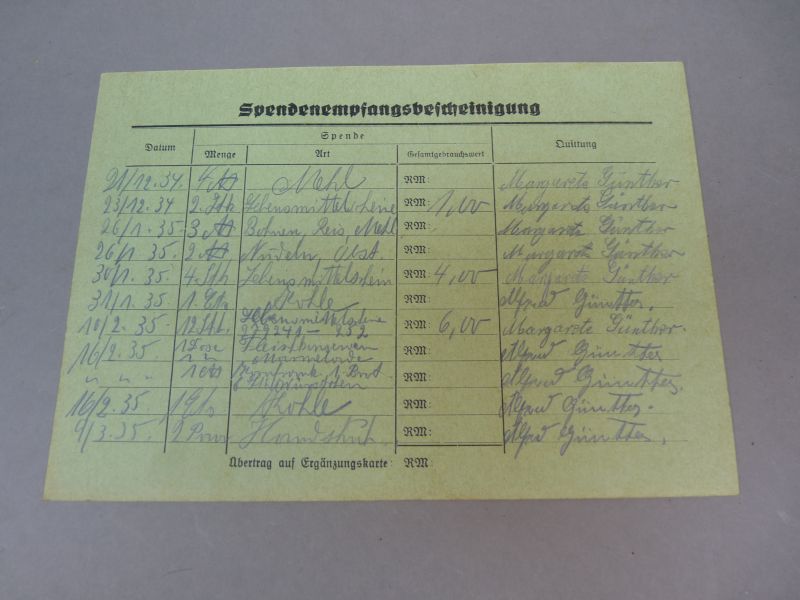 Spendenempfangsbescheinigung
Datum Spende Quittung
Menge Art Gesamtgebrauchswert
21/12.34. 4 Mehl RM: Margarete Günther
23/12.34 2. Stk Lebensmittelscheine RM: 1,00 Margarete Günther
26/1.35- 3 Bohnen, Reis, Mehl RM: Margarete Günther
26/1 35. 2 Nudeln, Obst. RM: Margarete Günther
30/1. 35. 4. Stk Lebensmittelschein RM: 4,00 Margarete Günther
31/1. 35. 1. Ctr Kohle RM: Alfred Günther.
10/2. 35. 12 Stk. Lebensmittelscheine RM: 6,00 Margarete Günther.
16/2. 35. 1 Dose RM: Alfred Günther
" " Marmelade
1 1 Brot RM: Alfred Günther.
16/2.35 1 Ctr. Kohle RM: Alfred Günther.
9/3.35. 2 Paar Handschuh. RM: Alfred Günther.
Übertrag auf Ergänzungskarte: RM: